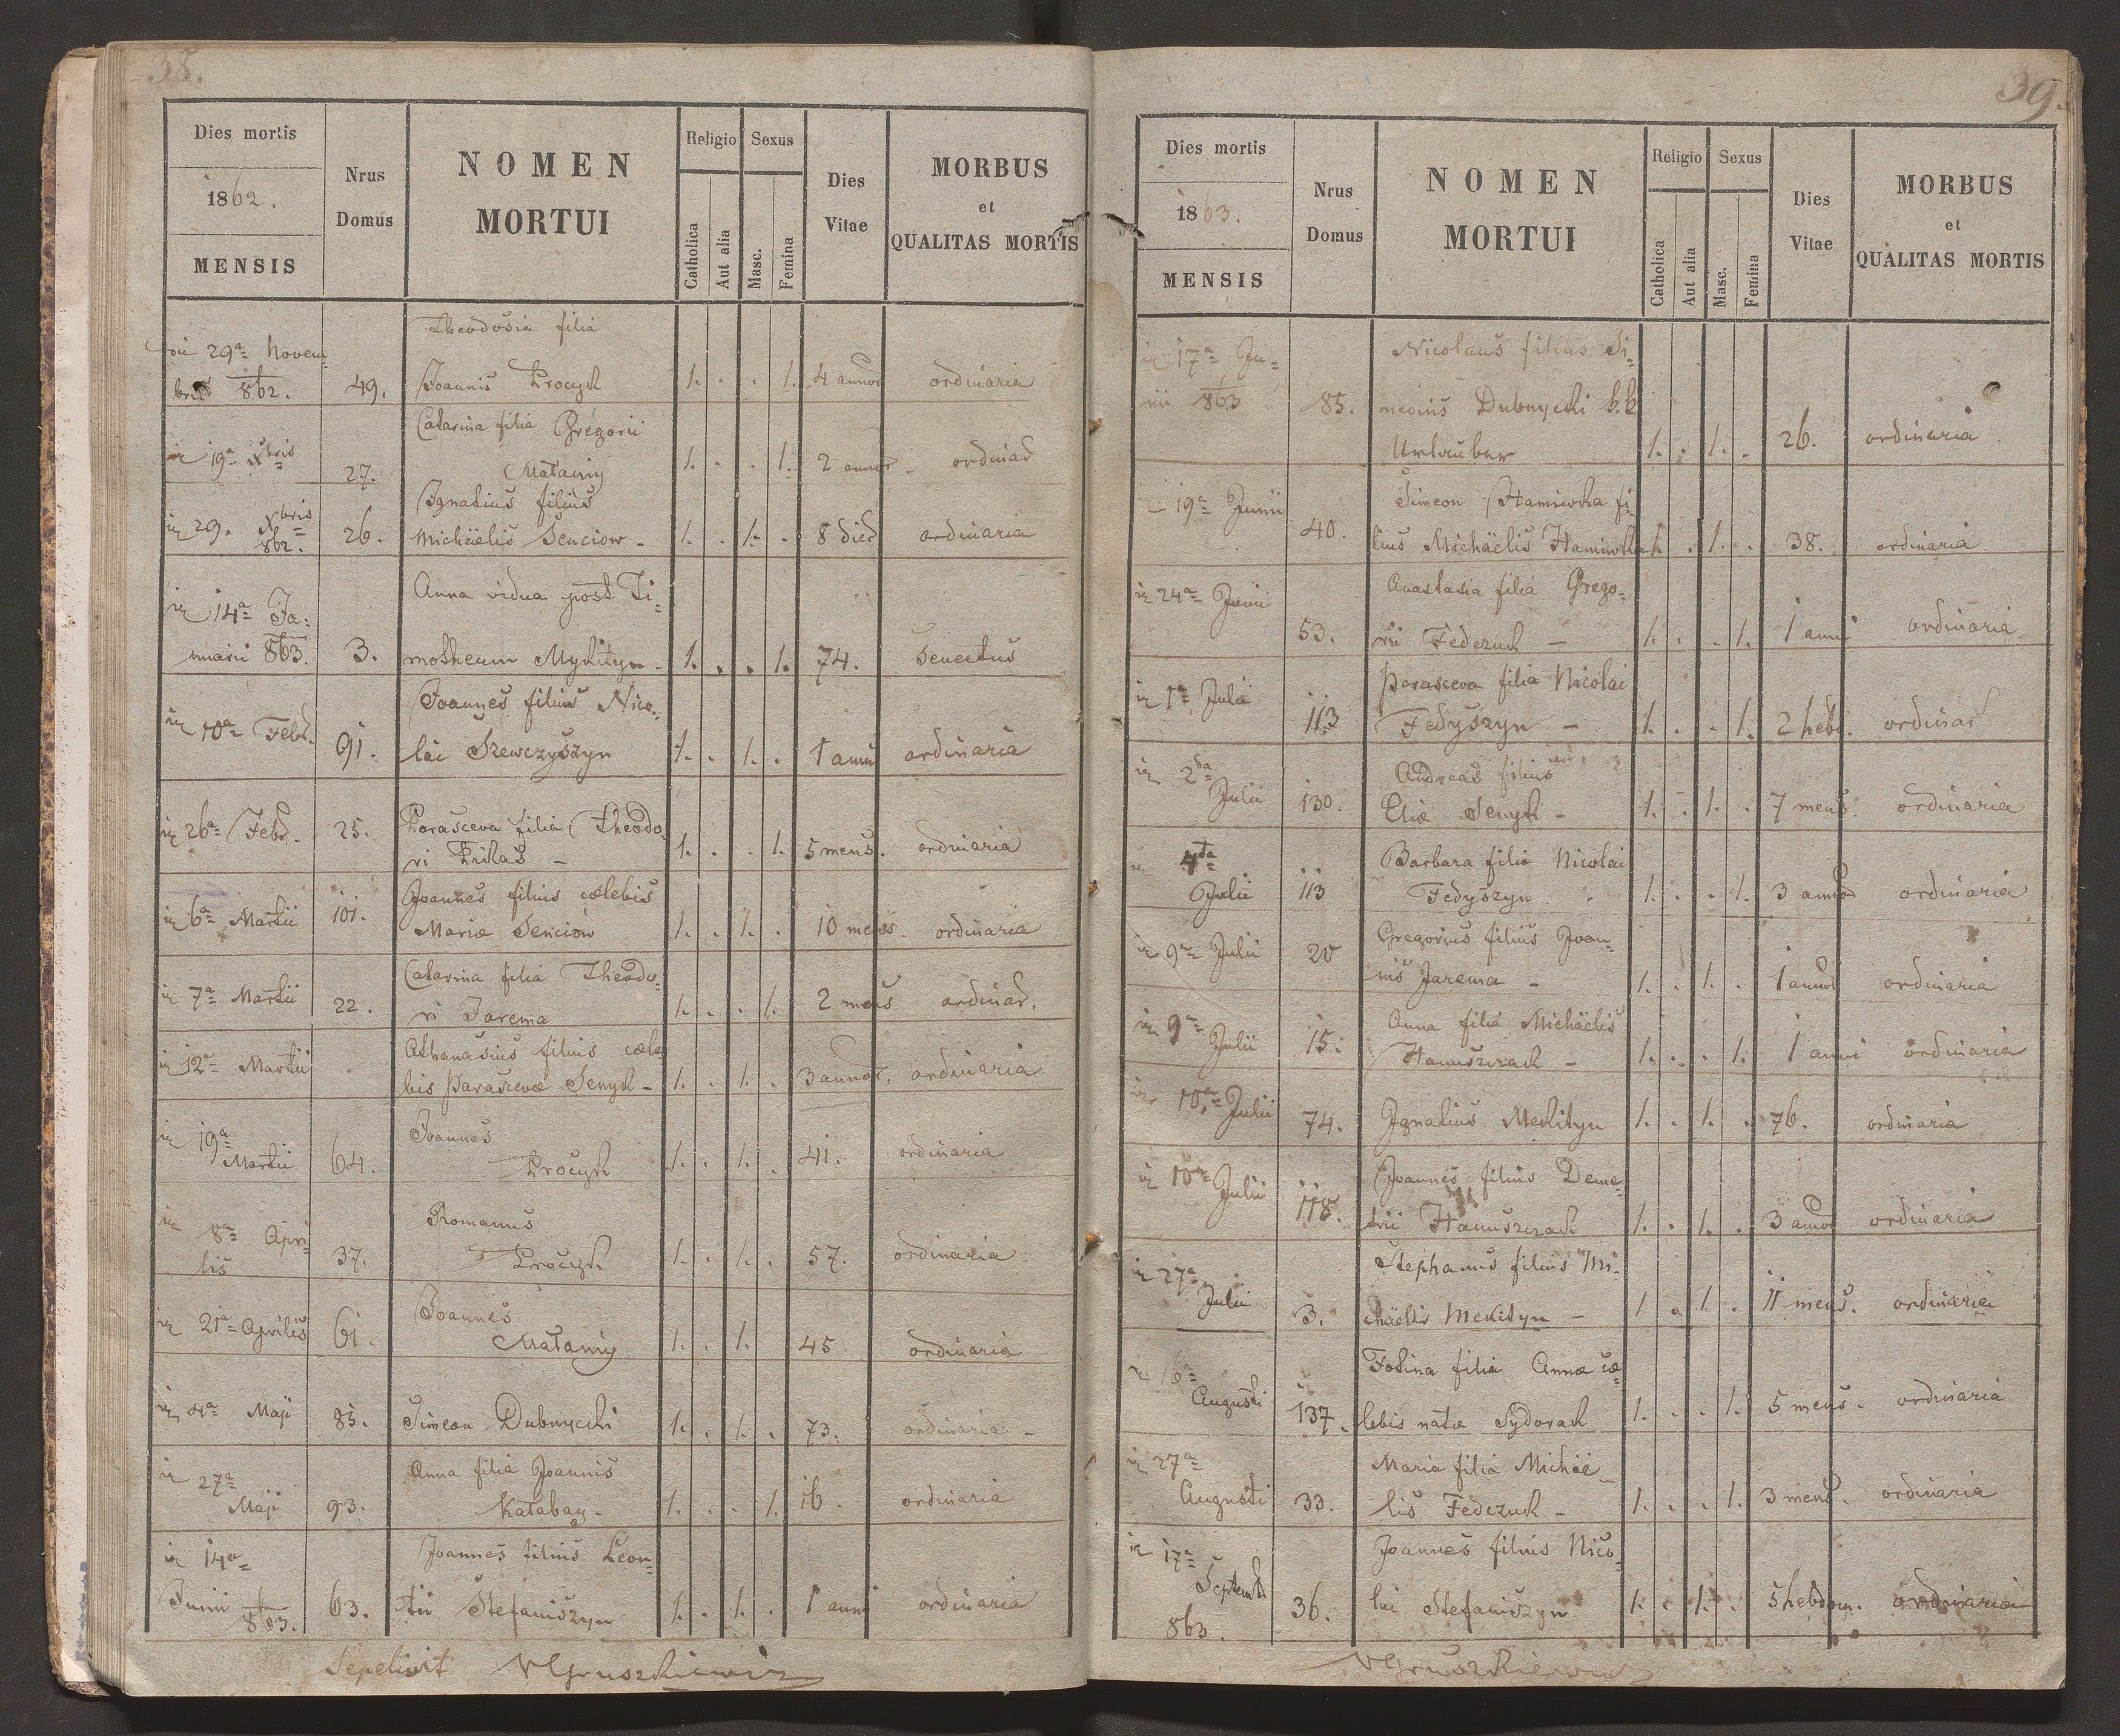 38.
Dies mortis
1862.
MENSIS
Nrus
Domus
NOMEN
MORTUI
Religio
Catholica
Aut alia
Sexus
Masc.
Femina
Dies
Vitae
MORBUS
et
QUALITAS MORTIS
Theodosia filia
29a Novem
bris 862. 49. Joannis Procyk 1. . . 1. 4 annor ordinaria
Catarina filia Gregorii
19a Xbris 27. Małaniy 1. . . 1. 2 annor ordinar
Ignatius filius
29. Xbris 862. 26. Michäelis Senciow - 1. . 1. . 8 dies ordinaria
Anna vidua post Ti=
14a Ja=
nuarii 863. 3. motheum Mykityn - 1. . . 1. 74. Senectus
Joannes filius Nico=
10a Febr. 91. lai Szewczyszyn 1. . 1. . 1 anni ordinaria
26a Febr. 25. Parasceva filia Theodo=
ri Prikas - 1. . . 1. 5 mens. ordinaria
6a Martii 101. Joannes filius cœlebis
Mariæ Senciow 1. . 1. . 10 mens. ordinaria
Catarina filia Theodo=
7a Martii 22. ri Jarema 1. . . 1. 2 mens ordinar.
12a Martii . Athanasius filius cœle=
bis Parascevæ Senyk - 1. . 1. . 3 annor. ordinaria
19a Joannes
Martii 64. Procyk 1. . 1. . 41. ordinaria
8a Apri Romanus
lis 37. Procyk 1. . 1. . 57. ordinaria
Joannes
21a Aprilis 61. Małaniy 1. . 1. 45 ordinaria
4a Maji 85. Simeon Dubnycki 1. . 1. . 73. ordinaria -
27a Anna filia Joannis
Maji 93. Katabay - 1. . . 1. 16. ordinaria
14a Joannes filius Leon=
Junii 863. 63. tii Stefaniszyn 1. . 1. . 1 anni ordinaria
Sepelivit VGruszkiewicz
39.
Dies mortis
1863.
MENSIS
Nrus
Domus
NOMEN
MORTUI
Religio
Catholica
Aut alia
Sexus
Masc.
Femina
Dies
Vitae
MORBUS
et
QUALITAS MORTIS
17a Ju= Nicolaus filius Si=
nii 863 85. meonis Dubnycki k.k
Urlauber 1. . 1. . 26. ordinaria
19a Junii Simeon Haminoka fi
40. lius Michäelis Haminoka 1. . 1. . 38. ordinaria
24a Junii Anastasia filia Grego=
53. rii Fedczuk - 1. . . 1. 1 anni ordinaria
1a Julii Parasceva filia Nicolai
113 Fedyszyn - 1. . . 1. 2 hebd. ordinar
2da Andreas filius
Julii 130. Eliæ Senyk - 1. . 1. . 7 mens. ordinaria
4ta Barbara filia Nicolai
Julii 113 Fedyszyn 1. . . 1. 3 annor ordinaria
9a Julii 20 Gregorius filius Joan=
nis Jarema - 1. . 1. . 1 anni ordinaria
9a Anna filia Michäelis
Julii 15. Hanuszczak - 1. . . 1. 1 anni ordinaria
10a Julii 74. Ignatius Mekityn 1. . 1. . 76. ordinaria
10a Joannes filius Deme=
Julii 118. trii Hanuszczak 1. . 1. . 3 annor ordinaria
27a Stephanus filius Mi=
Julii 3. chäelis Mekityn - 1 . 1. . 11 mens. ordinaria
16a Fotina filia Annæ cœ=
Augusti 137. lebis natæ Sydorak 1. . . 1. 5 mens. ordinaria
27a Maria filia Michäe=
Augusti 33. lis Fedczuk - 1. . . 1. 3 mens. ordinaria
17a Joannes filius Nico=
Septemb 863. 36. lai Stefaniszyn 1. . 1. . 5 hebdom. ordinaria
VGruszkiewicz